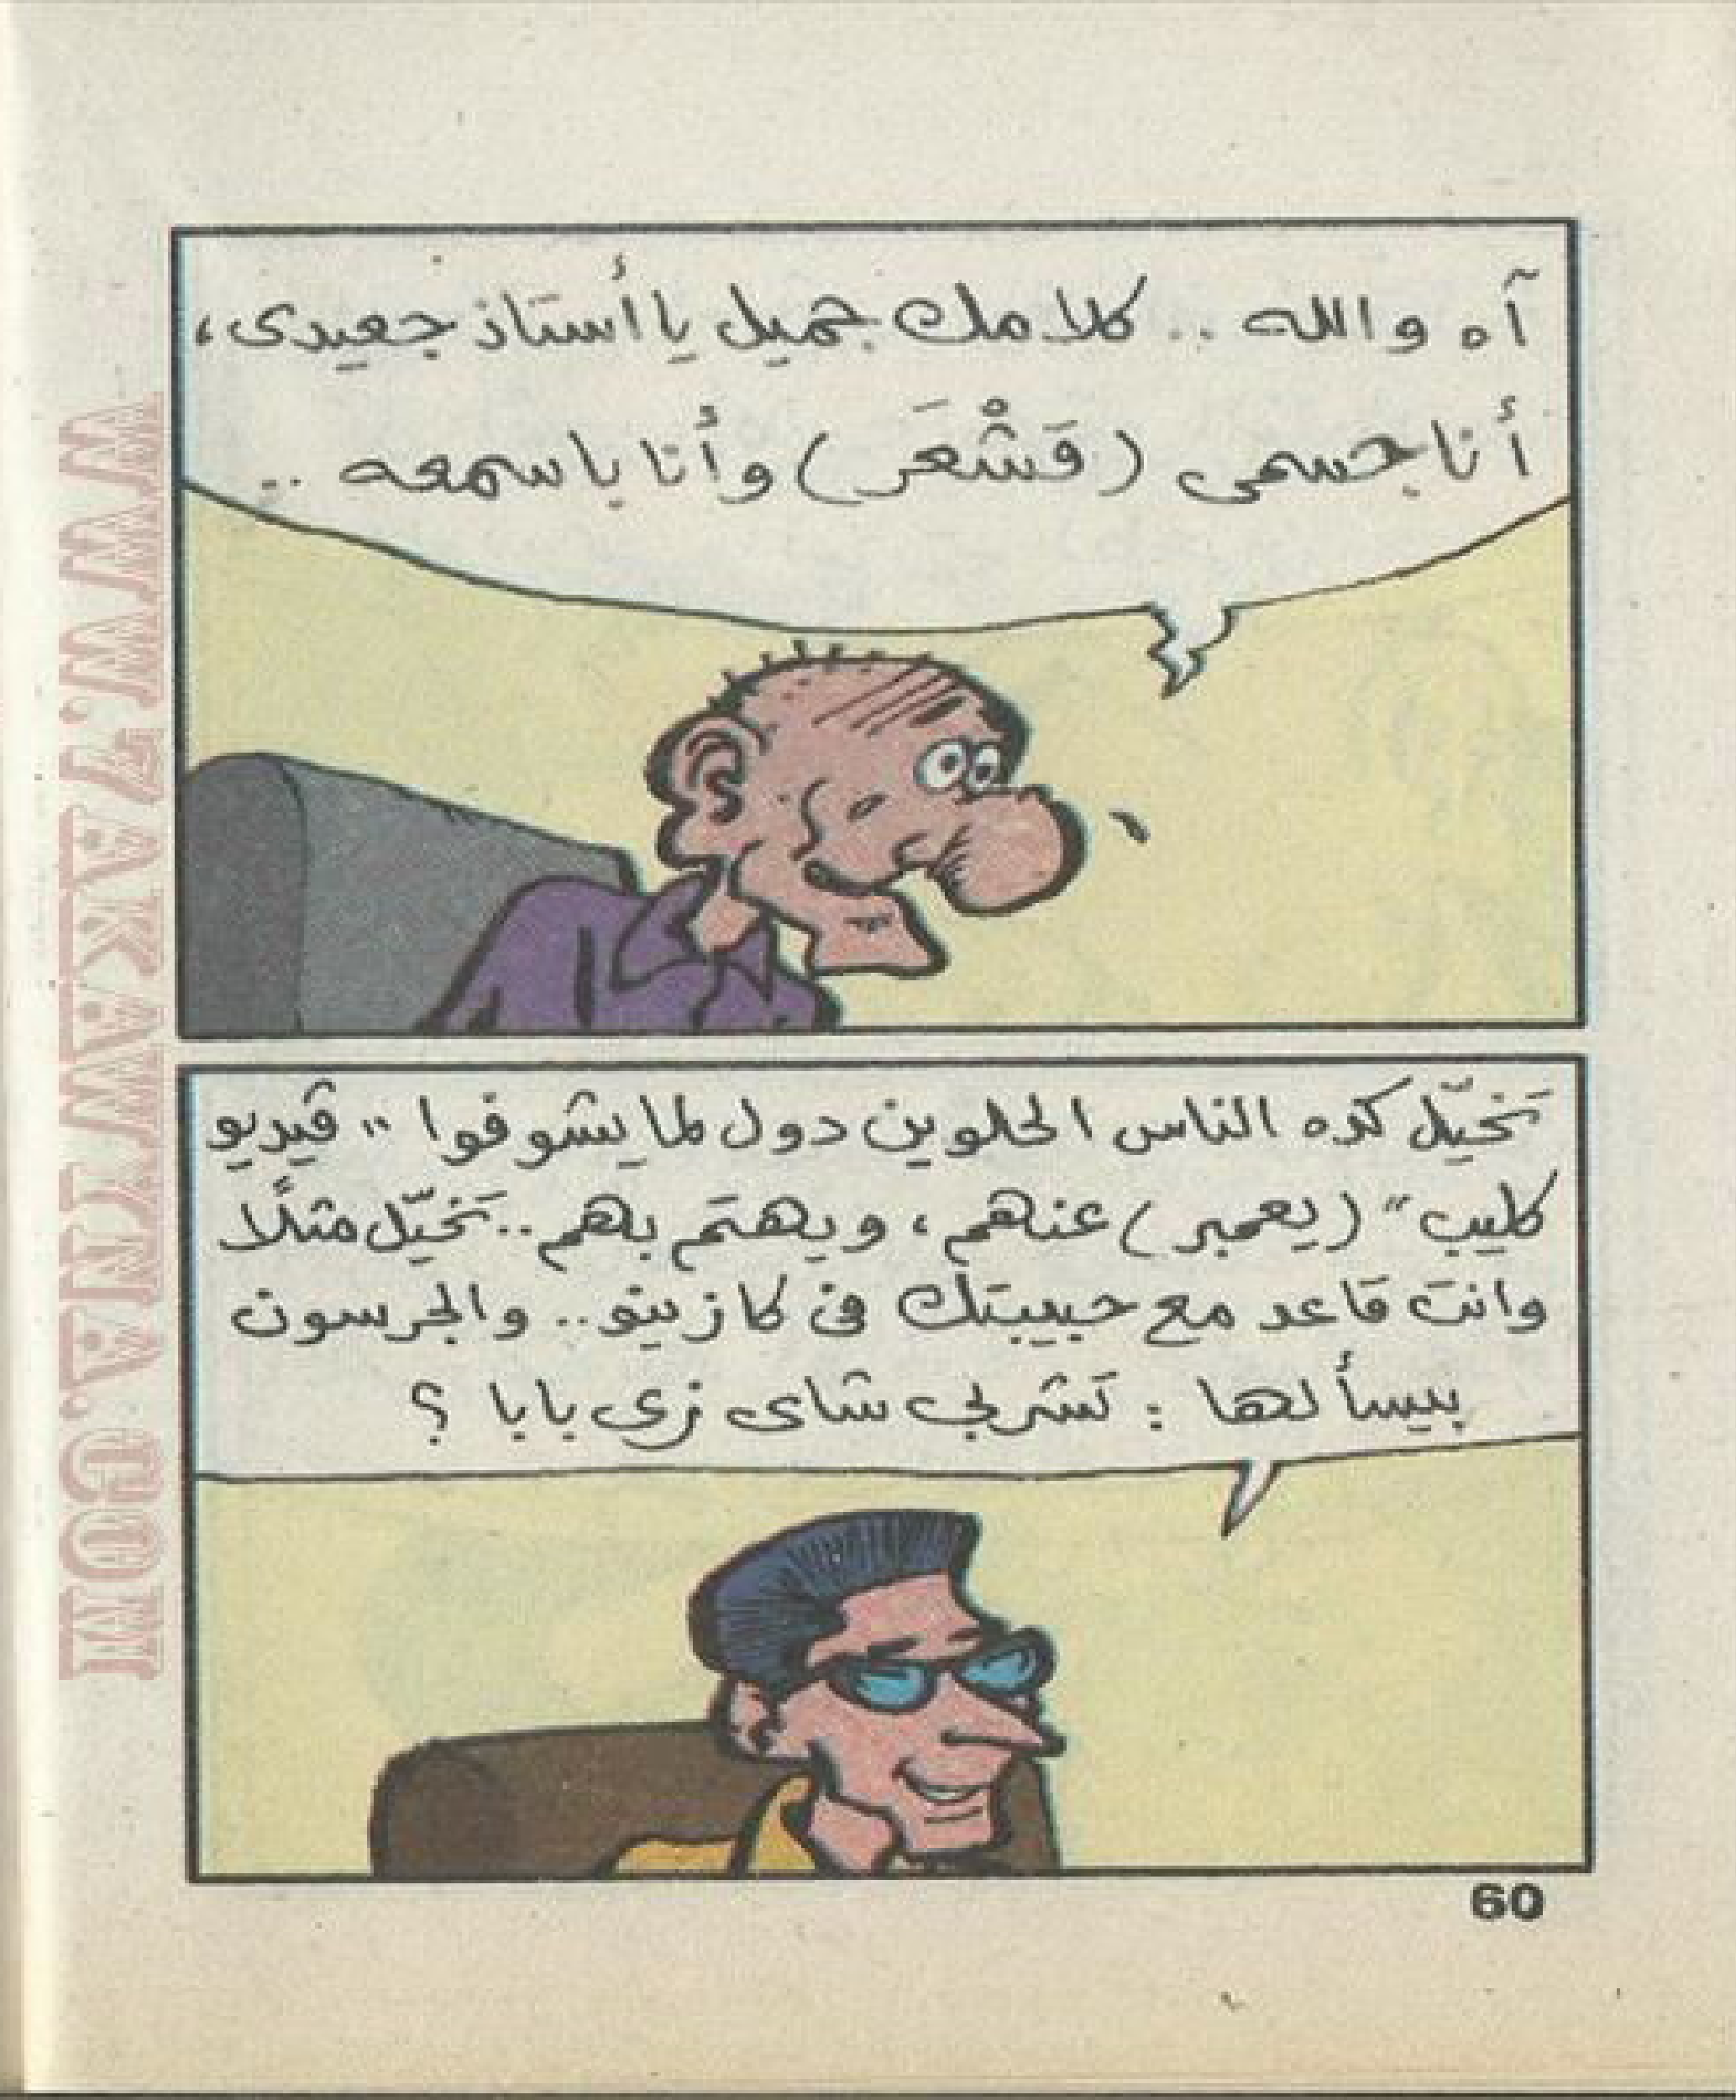 آه والله .. كلامك جميل يا أستاذ جعيدى،
أنا جسمى (قَشْعَر) وأنا باسمعه ..
تَخيّل كده الناس الحلوين دول لما يشوفوا "ڤيديو
كليب" (يعمبر) عنهم، ويهتَم بهم.. تَخيّل مثلًا
وانت قاعد مع حبيبتك فى كازينو.. والجرسون
بيسألها : تَشربى شاى زى بابا ؟
60
WWW.7AKAWITNA.COM